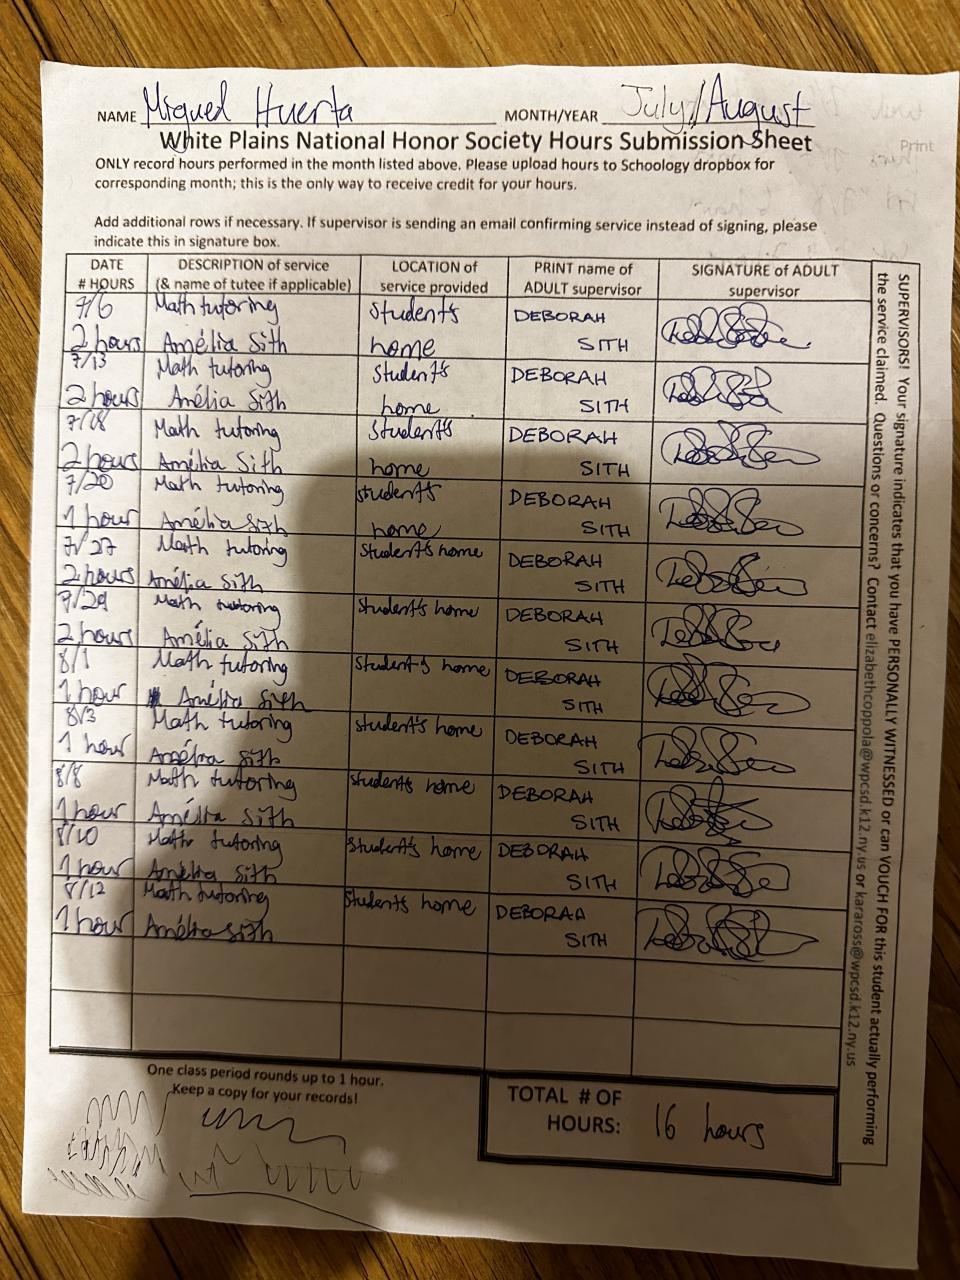 NAME Miguel Huerta MONTH/YEAR July/August
White Plains National Honor Society Hours Submission Sheet
Print
ONLY record hours performed in the month listed above. Please upload hours to Schoology dropbox for
corresponding month; this is the only way to receive credit for your hours.
Add additional rows if necessary. If supervisor is sending an email confirming service instead of signing, please
indicate this in signature box.
DATE DESCRIPTION of service LOCATION of PRINT name of SIGNATURE of ADULT
# HOURS (& name of tutee if applicable) service provided ADULT supervisor supervisor
7/6 Math tutoring Student's DEBORAH
2 hours Amélia Sith home SITH
7/13 Math tutoring Student's DEBORAH
2 hours Amélia Sith home SITH
7/18 Math tutoring Student's DEBORAH
2 hours Amélia Sith home SITH
7/20 Math tutoring student's DEBORAH
1 hour Amélia Sith home SITH
7/27 Math tutoring Student's home DEBORAH
2 hours Amélia Sith SITH
7/29 Math tutoring Student's home DEBORAH
2 hours Amélia Sith SITH
8/1 Math tutoring Student's home DEBORAH
1 hour Amélia Sith SITH
8/3 Math tutoring student's home DEBORAH
1 hour Amélia Sith SITH
8/8 Math tutoring students home DEBORAH
1 hour Amélia Sith SITH
8/10 Math tutoring Student's home DEBORAH
1 hour Amélia Sith SITH
8/12 Math tutoring Students home DEBORAH
1 hour Amélia Sith SITH
SUPERVISORS! Your signature indicates that you have PERSONALLY WITNESSED or can VOUCH FOR this student actually performing
the service claimed. Questions or concerns? Contact elizabethcoppola@wpcsd.k12.ny.us or karaross@wpcsd.k12.ny.us
One class period rounds up to 1 hour.
Keep a copy for your records!
TOTAL # OF
HOURS: 16 hours